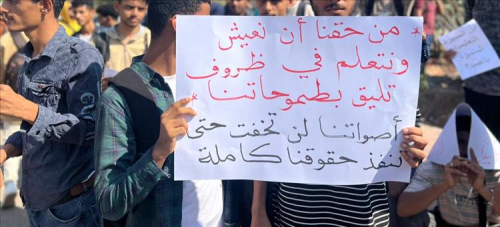 * من حقنا أن نعيش
ونتعلم في ظروف
تليق بطموحاتنا *
أصواتنا لن تخفت حتى
تنفذ حقوقنا كاملة